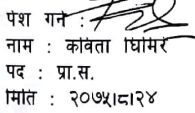 पेश गर्ने :
नाम : कविता घिमिरे
पद : प्रा.स.
मिति : २०७५।८।२४